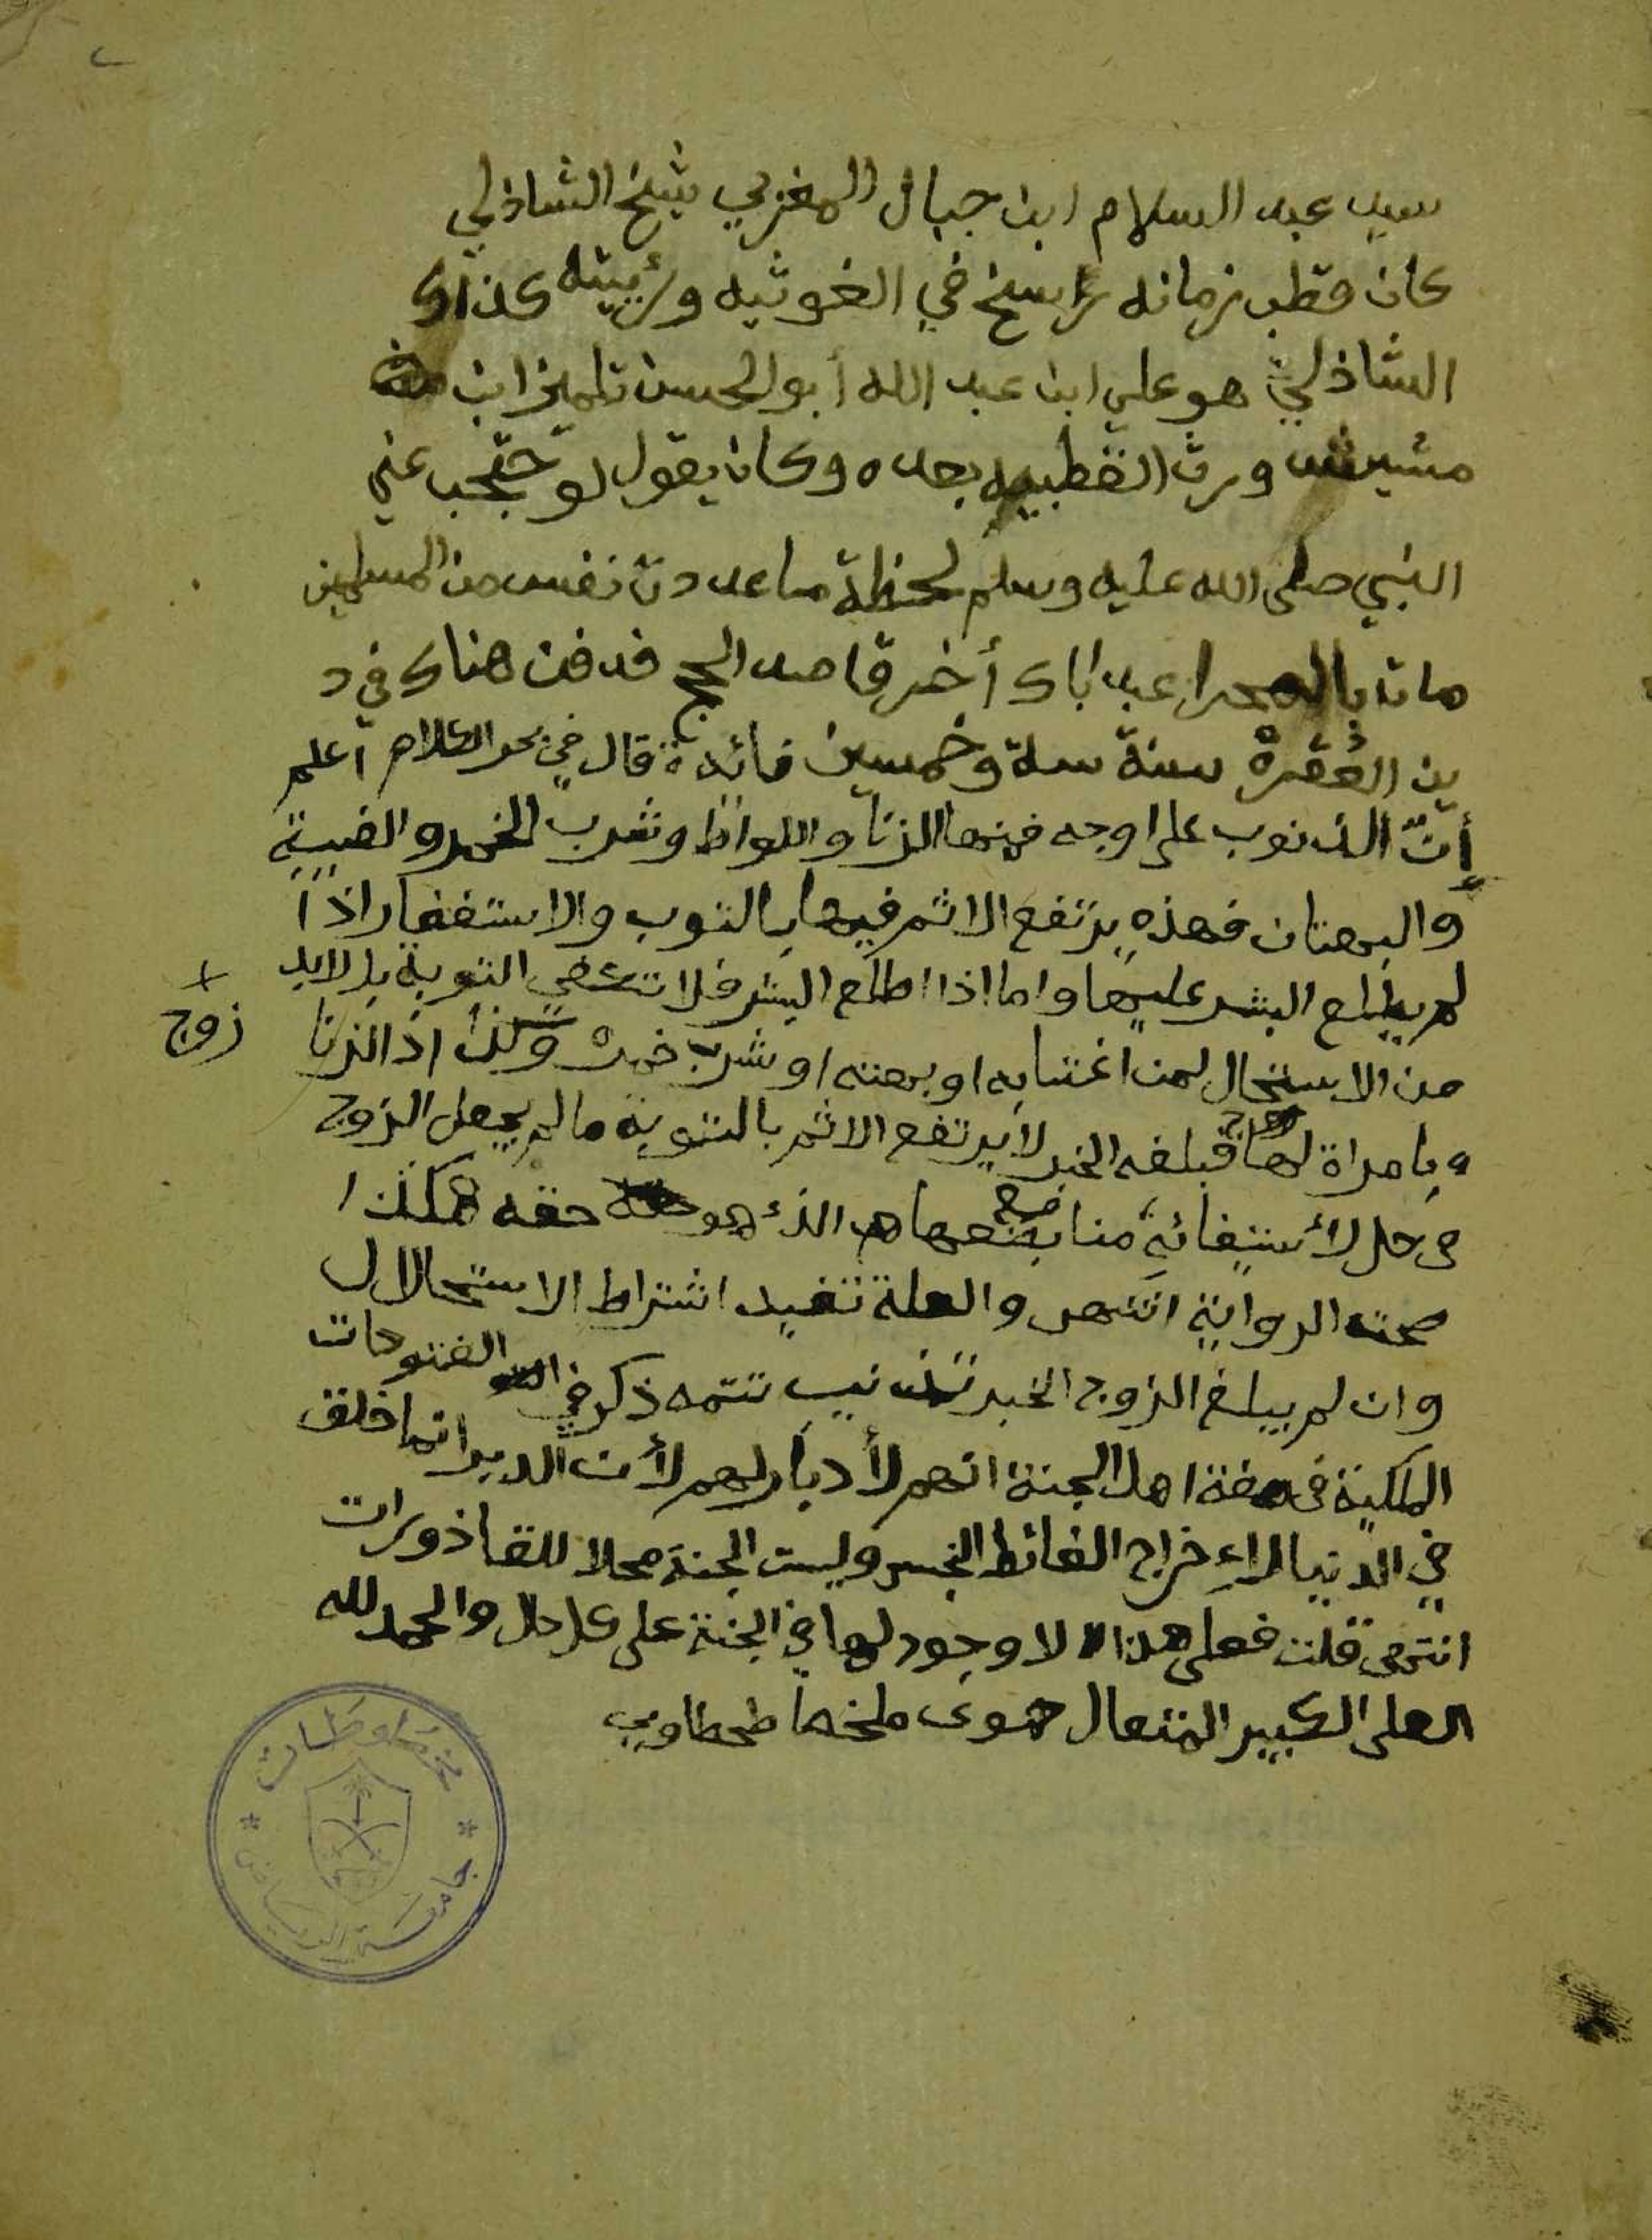 سيد عبد السلام ابن جبال المغربي شيخ الشاذلي
كان قطب زمانه راسخ في الغوثيه ورئيته كذاك
الشاذلي هو علي ابن عبد الله أبو الحسن تلميذ ابن
مشيش ورث القطبيه بعده وكان يقول لو حتجب عني
النبي صلى الله عليه وسلم لحظة ما عددت نفس من المسلمين
مات بالصحرا عبد اباك أخر قاصد الحج فدفن هناك في د
ين العُقرة سنة ستة وخمسين فائدة قال في بحر الكلام اعلم
إنّ الذنوب على اوجه فمنها الزنا واللواط وشرب الخمر والغيبة
والبهتان فهذه يرتفع الاثم فيها بالتوب والاستغفار اذا
لم يطلع البشر عليها واما اذا اطلع البشر فلا تكفي التوبة بل لابد
من الاستحال لمن اغتابه او بهته او شرب خمره وكذا اذا لزنا
زوج
وبامراة لها فبلغه الخبر لا يرتفع الاثم بالتوبة ما لم يجعل الزوج
في حل لأستفائية منا بضعها هر الذء هو حقه هكذا
صحت الرواية انتهى والعلة تفيد اشتراط الاستحلال
وان لم يبلغ الزوج الخبر تذنيب تتمه ذكر في الفتوحات
المكية في صفة اهل الجنة انهم لأدبار لهم لأن الدبر انما خلق
في الدنيا لإخراج الغائط النجس وليست الجنة محلا للقاذورات
انتهى قلت فعلى هذا لا وجود لها في الجنة على كل حال والحمد لله
العلى الكبير المتعال حموى ملخصا طحطاوي
مخطوطات
جامعة الرياض